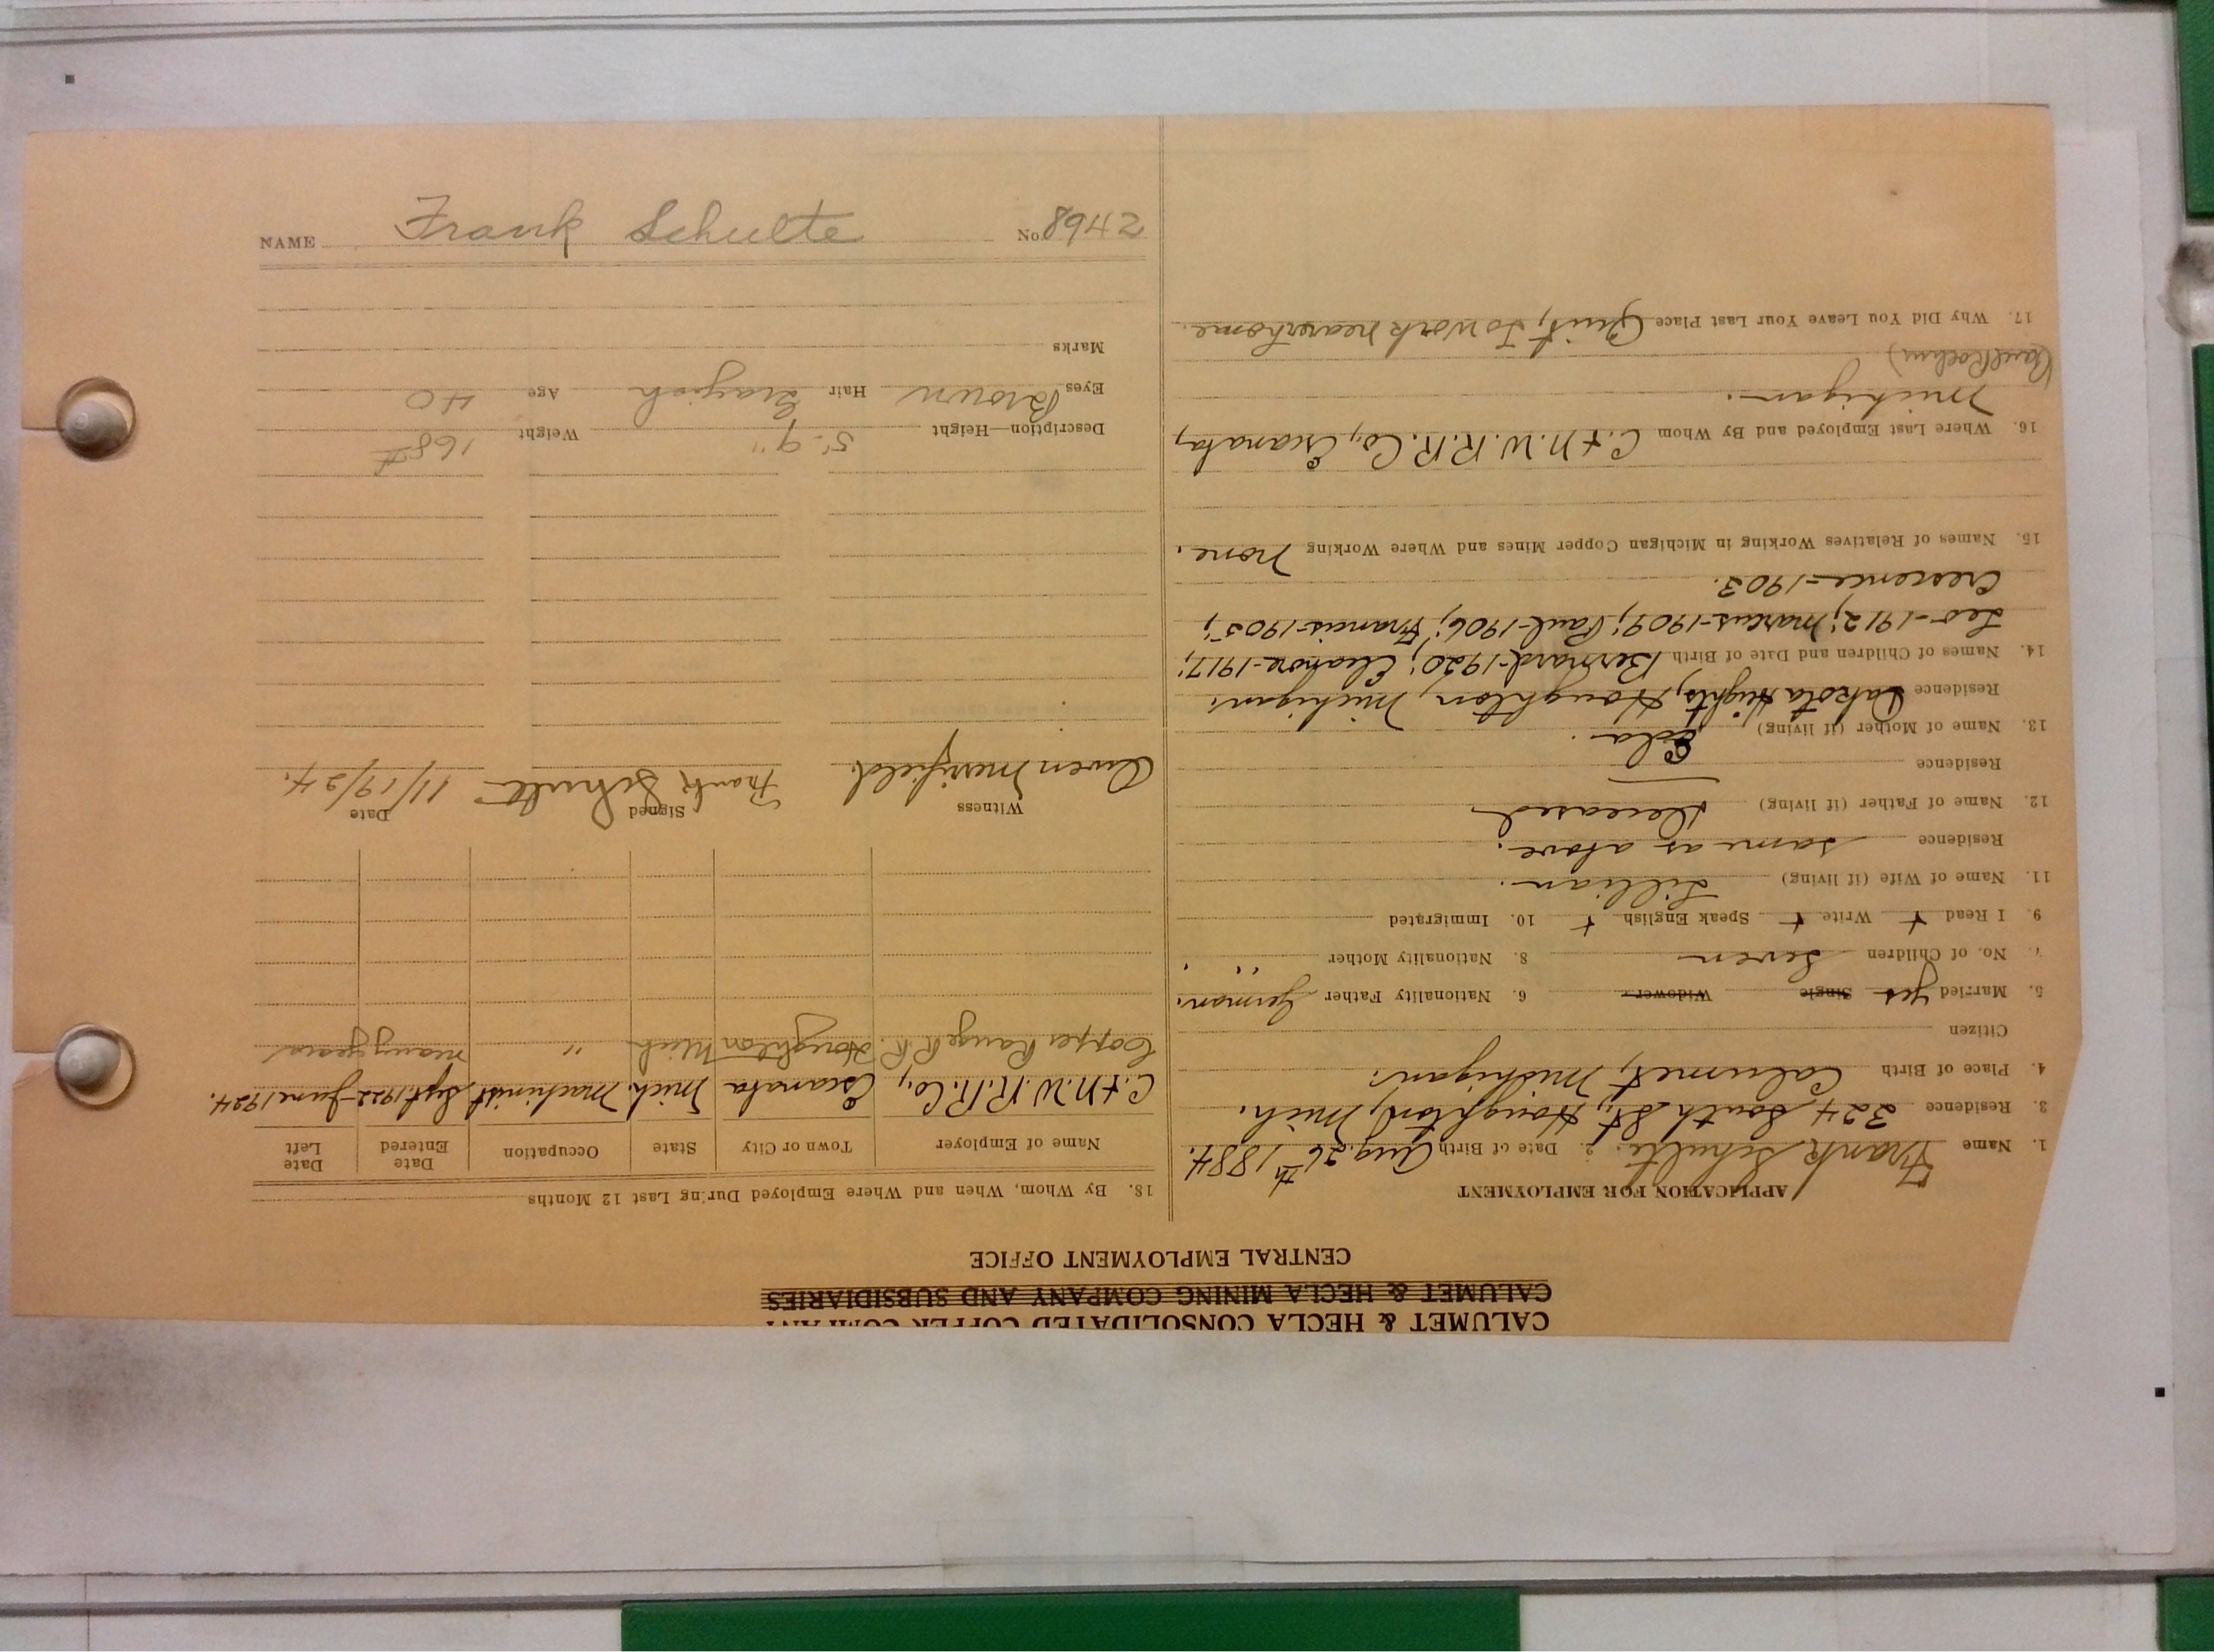 CALUMET & HECLA CONSOLIDATED COPPER COMPANY
CALUMET & HECLA MINING COMPANY AND SUBSIDIARIES
CENTRAL EMPLOYMENT OFFICE
APPLICATION FOR EMPLOYMENT
1. Name Frank Schulte. 2. Date of Birth Aug. 26th 1884.
3. Residence 324 South St., Houghton, Mich.
4. Place of Birth Calumet, Michigan.
Citizen
5. Married yes Single Widower 6. Nationality Father German.
7. No. of Children Seven 8. Nationality Mother " .
9. I Read + Write + Speak English + 10. Immigrated
11. Name of Wife (if living) Lillian.
Residence same as above.
12. Name of Father (if living) Deceased
Residence
13. Name of Mother (if living) Eda.
Residence Dakota Heights, Houghton, Michigan.
14. Names of Children and Date of Birth Bernard-1920; Eleanora-1917;
Leo-1912; Marcus-1909; Paul-1906; Francis-1905;
Crescence-1903.
15. Names of Relatives Working in Michigan Copper Mines and Where Working None.
16. Where Last Employed and By Whom C. & N. W. R. R. Co., Escanaba,
Michigan.
(Paul Roehm)
17. Why Did You Leave Your Last Place Quit, to work nearer home.
18. By Whom, When and Where Employed During Last 12 Months
Name of Employer Town or City State Occupation Date Entered Date Left
C. & N. W. R. R. Co., Escanaba Mich. Machinist Sept. 1922- June 1924.
Copper Range R. R. Houghton Mich " many years
Witness Signed Date
Owen Merrifield. Frank Schulte 11/19/24.
Description—Height 5'-9" Weight 168#
Eyes Brown Hair Grayish Age 40
Marks
NAME Frank Schulte No. 8942